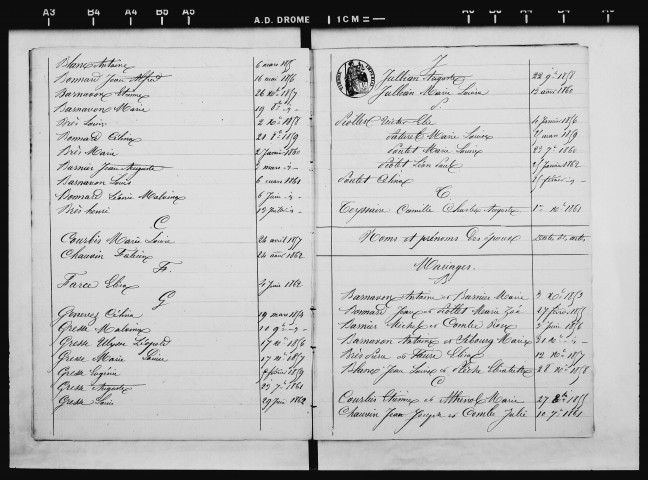 A3 B4 A4 B5 A5
A.D. DROME
1 CM
Blanc Antoine 6 mars 1855
Bonnard Jean Alfred 16 mai 1856
Barnavon Etienne 26 Xbre 1857
Barnavon Marie 19 8bre -»-
Brès Louis 2 Xbre 1858
Bonnard Célina 20 8bre 1859
Brès Marie 2 Janvier 1860
Barnier Jean Auguste mars -»-
Barnavon Louis 6 mars 1861
Bonnard Léonie Malvina 6 Juin -»-
Brès henri 12 Juillet -»-
C
Courbis Marie Louise 24 avril 1857
Chauvin 24 aout 1862
F.
Farce Eliza 4 Juin 1862
G
Genevez Célina 19 mars 1854
Gresse Malvina 10 9bre -»-
Gresse Ulysse Léopold 17 1856
Gresse Marie Louise 17 1857
Gresse Eugénie février 1859
Gresse Auguste 22 7bre 1861
Gresse Louis 29 Juin 1862
J
Jullian Auguste 22 9bre 1858
Jullian Marie Louise 12 aout 1860
P
Piollet Victor Elie 4 Janvier 1856
Marie Louise mars 1859
Poulet Marie Louise 23 7bre 1860
Piollet Léon Paul Janvier 1862
Poulet Célina février -»-
T
Teyssaire Camille Charles Auguste 1er Xbre 1861
Noms et prénoms des époux date des actes
Mariages.
B
Barnavon Antoine et Barnier Marie 3 Xbre 1853
Bonnard Jean et Piollet Marie Zoé 27 février 1855
Barnier Michel et Combe Rose 2 Juin 1856
Barnavon Antoine et Marie 21 Xbre -»-
Brès et Faure Eliza 12 Xbre 1857
Blanc Jean Louis et Elisabeth 28 Xbre 1858
C
Courbis Etienne et Athénol Marie 27 1855
Chauvin Jean Joseph et Combe Julie 10 7bre 1861